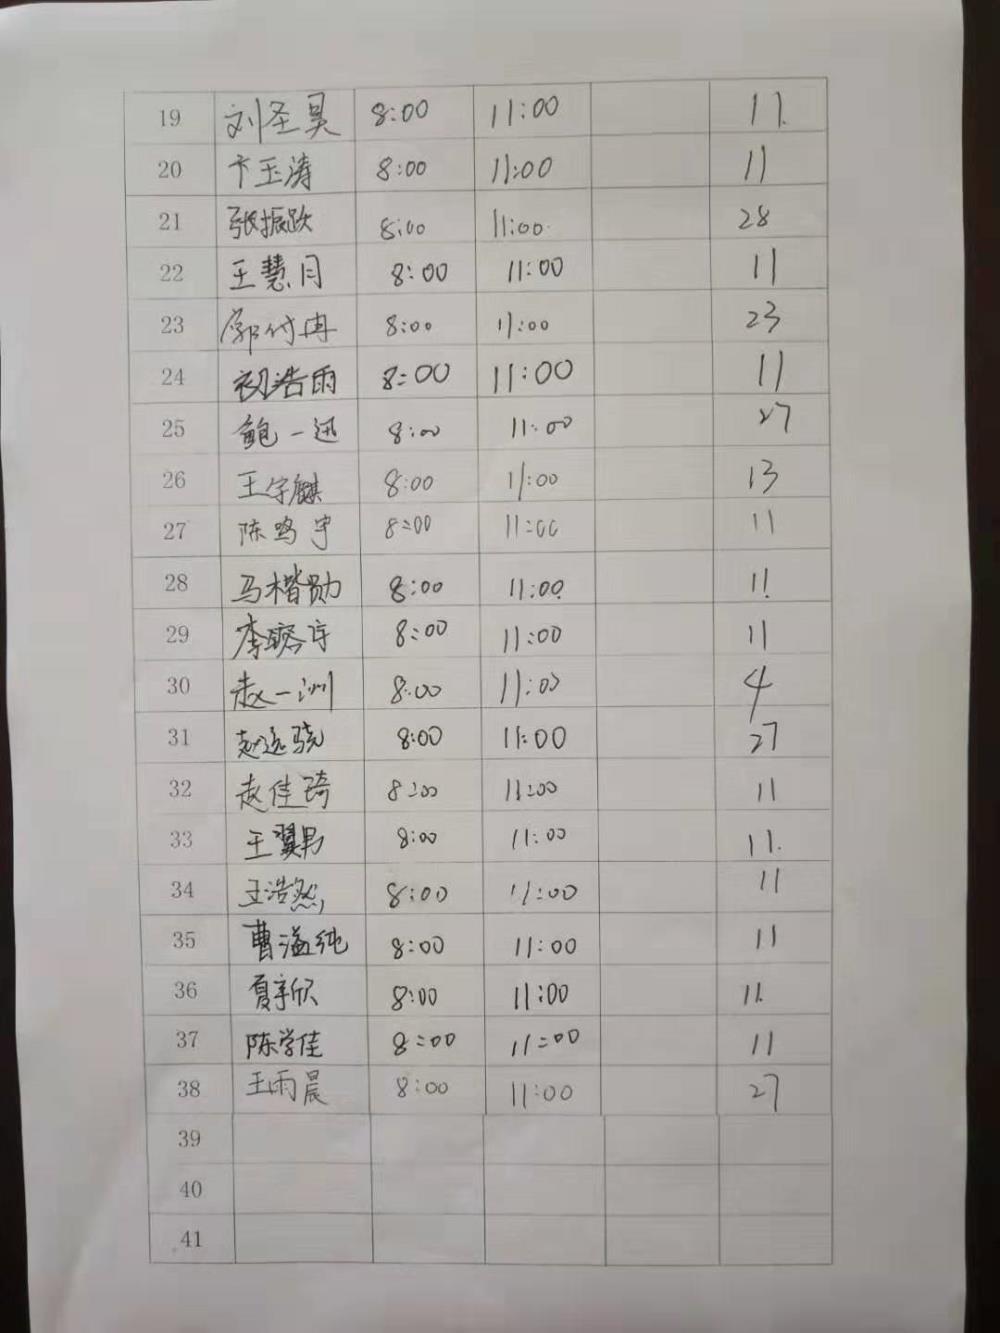 19 刘圣昊 8:00 11:00 11.
20 卞玉涛 8:00 11:00 11
21 张振跃 8:00 11:00. 28
22 王慧月 8:00 11:00 11
23 郭付冉 8:00 11:00 23
24 初浩雨 8:00 11:00 11
25 鲍一迅 8:00 11:00 27
26 王宇麒 8:00 11:00 13
27 陈鸣宇 8:00 11:00 11
28 马楷勋 8:00 11:00 11.
29 李 8:00 11:00 11
30 赵一洲 8:00 11:00 4
31 赵远骁 8:00 11:00 27
32 赵佳琦 8:00 11:00 11
33 王翼男 8:00 11:00 11.
34 王浩然 8:00 11:00 11
35 曹溢纯 8:00 11:00 11
36 夏新欣 8:00 11:00 11.
37 陈学佳 8:00 11:00 11
38 王雨晨 8:00 11:00 27
39
40
41